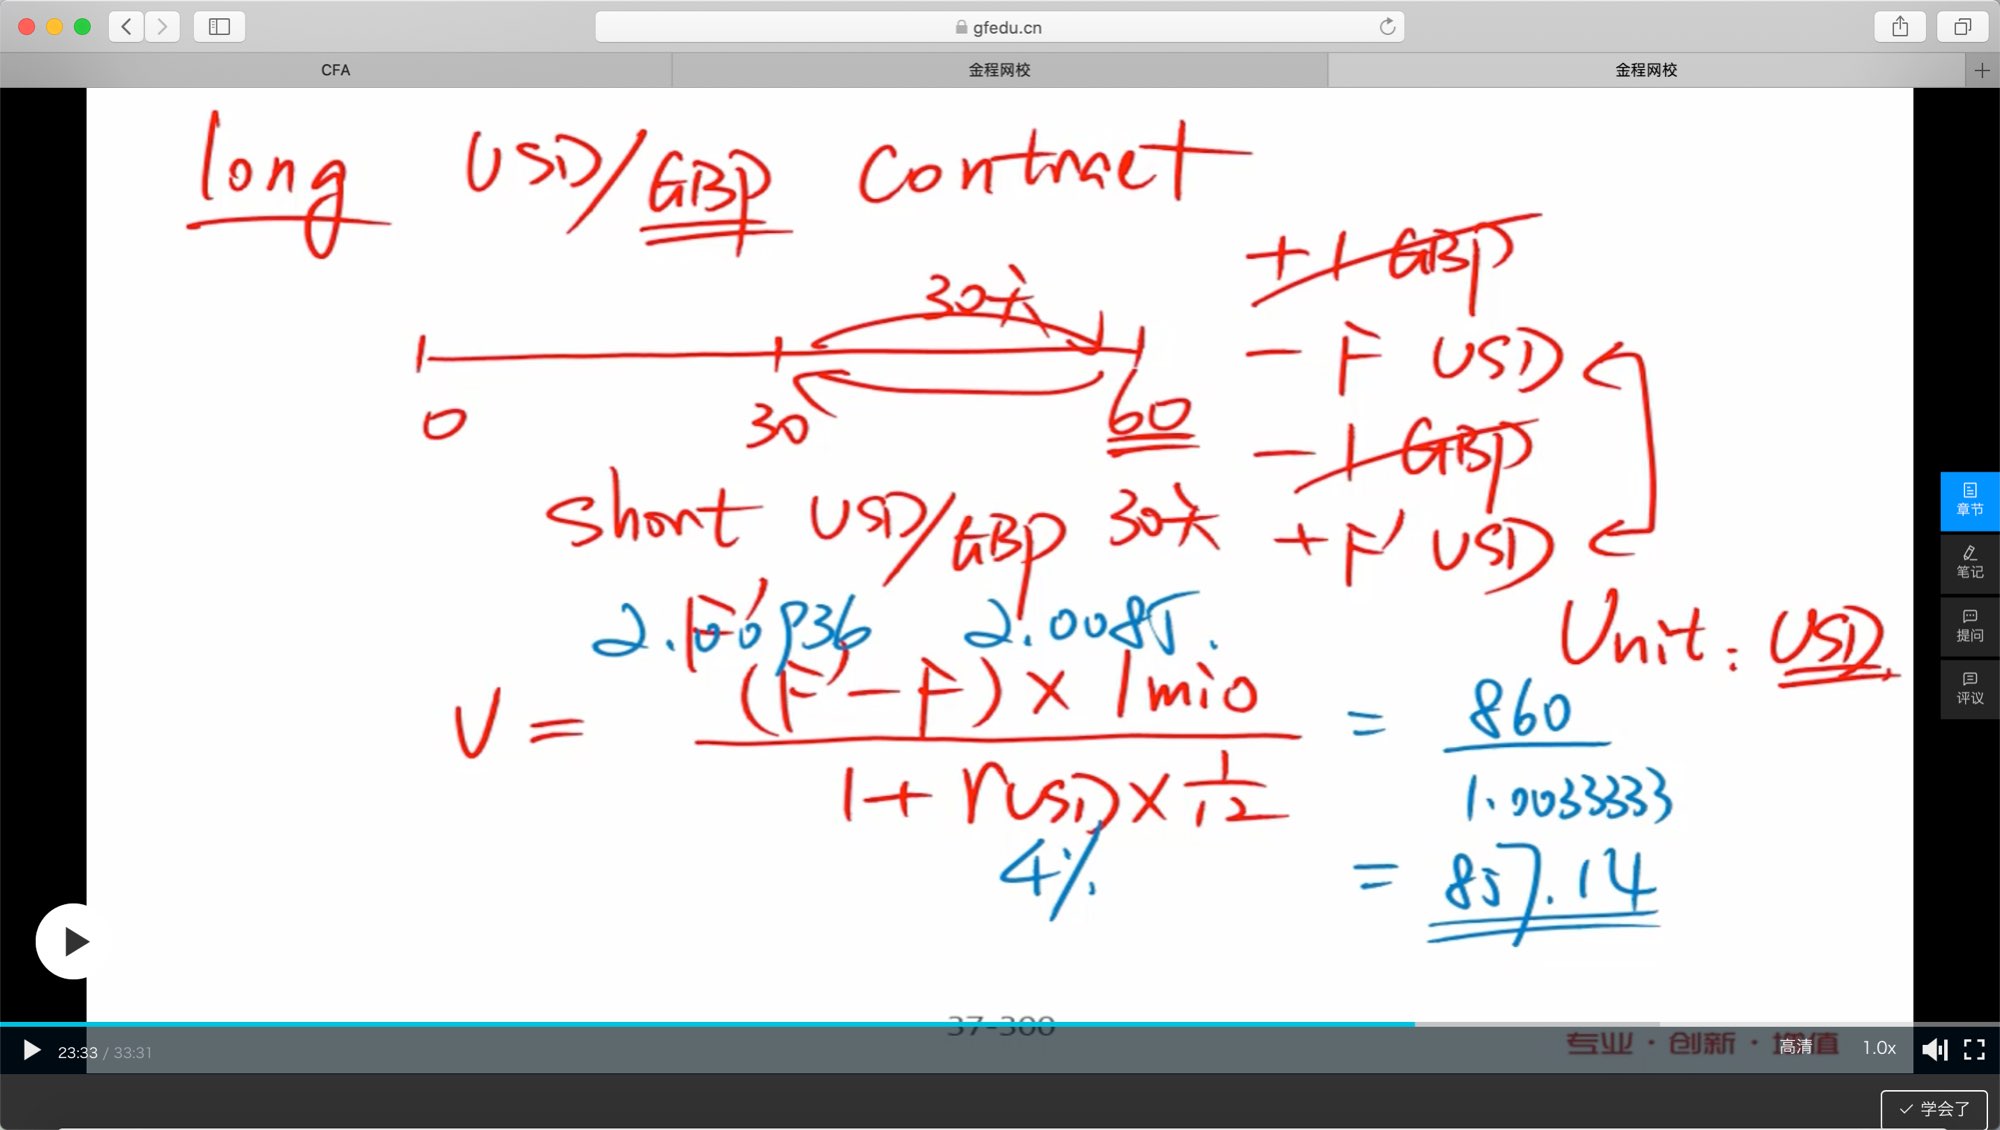 gfedu.cn
CFA
金程网校
金程网校
long USD/GBP contract
+1 GBP
30天
- F USD
0 30 60
- 1 GBP
short USD/GBP 30天 + F' USD
F'
2.00936 2.0085.
Unit: USD.
V = (F' - F) × 1mio = 860
1 + rUSD × 1/12 1.0033333
4%
= 857.14
37-300
专业·创新·增值
章节
笔记
提问
评议
23:33 / 33:31
高清
1.0x
✓ 学会了